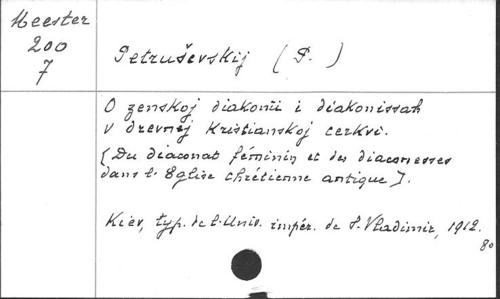 Meester
200
7
Petruševskij (P.)
O zenskoj diakonii i diakonissah
v drevnej Kristianskoj cerkvi.
[Du diaconat féminin et des diaconesses
dans l'Eglise chrétienne antique].
Kiev, typ. de l'Univ. impér. de S. Vladimir, 1912.
8o